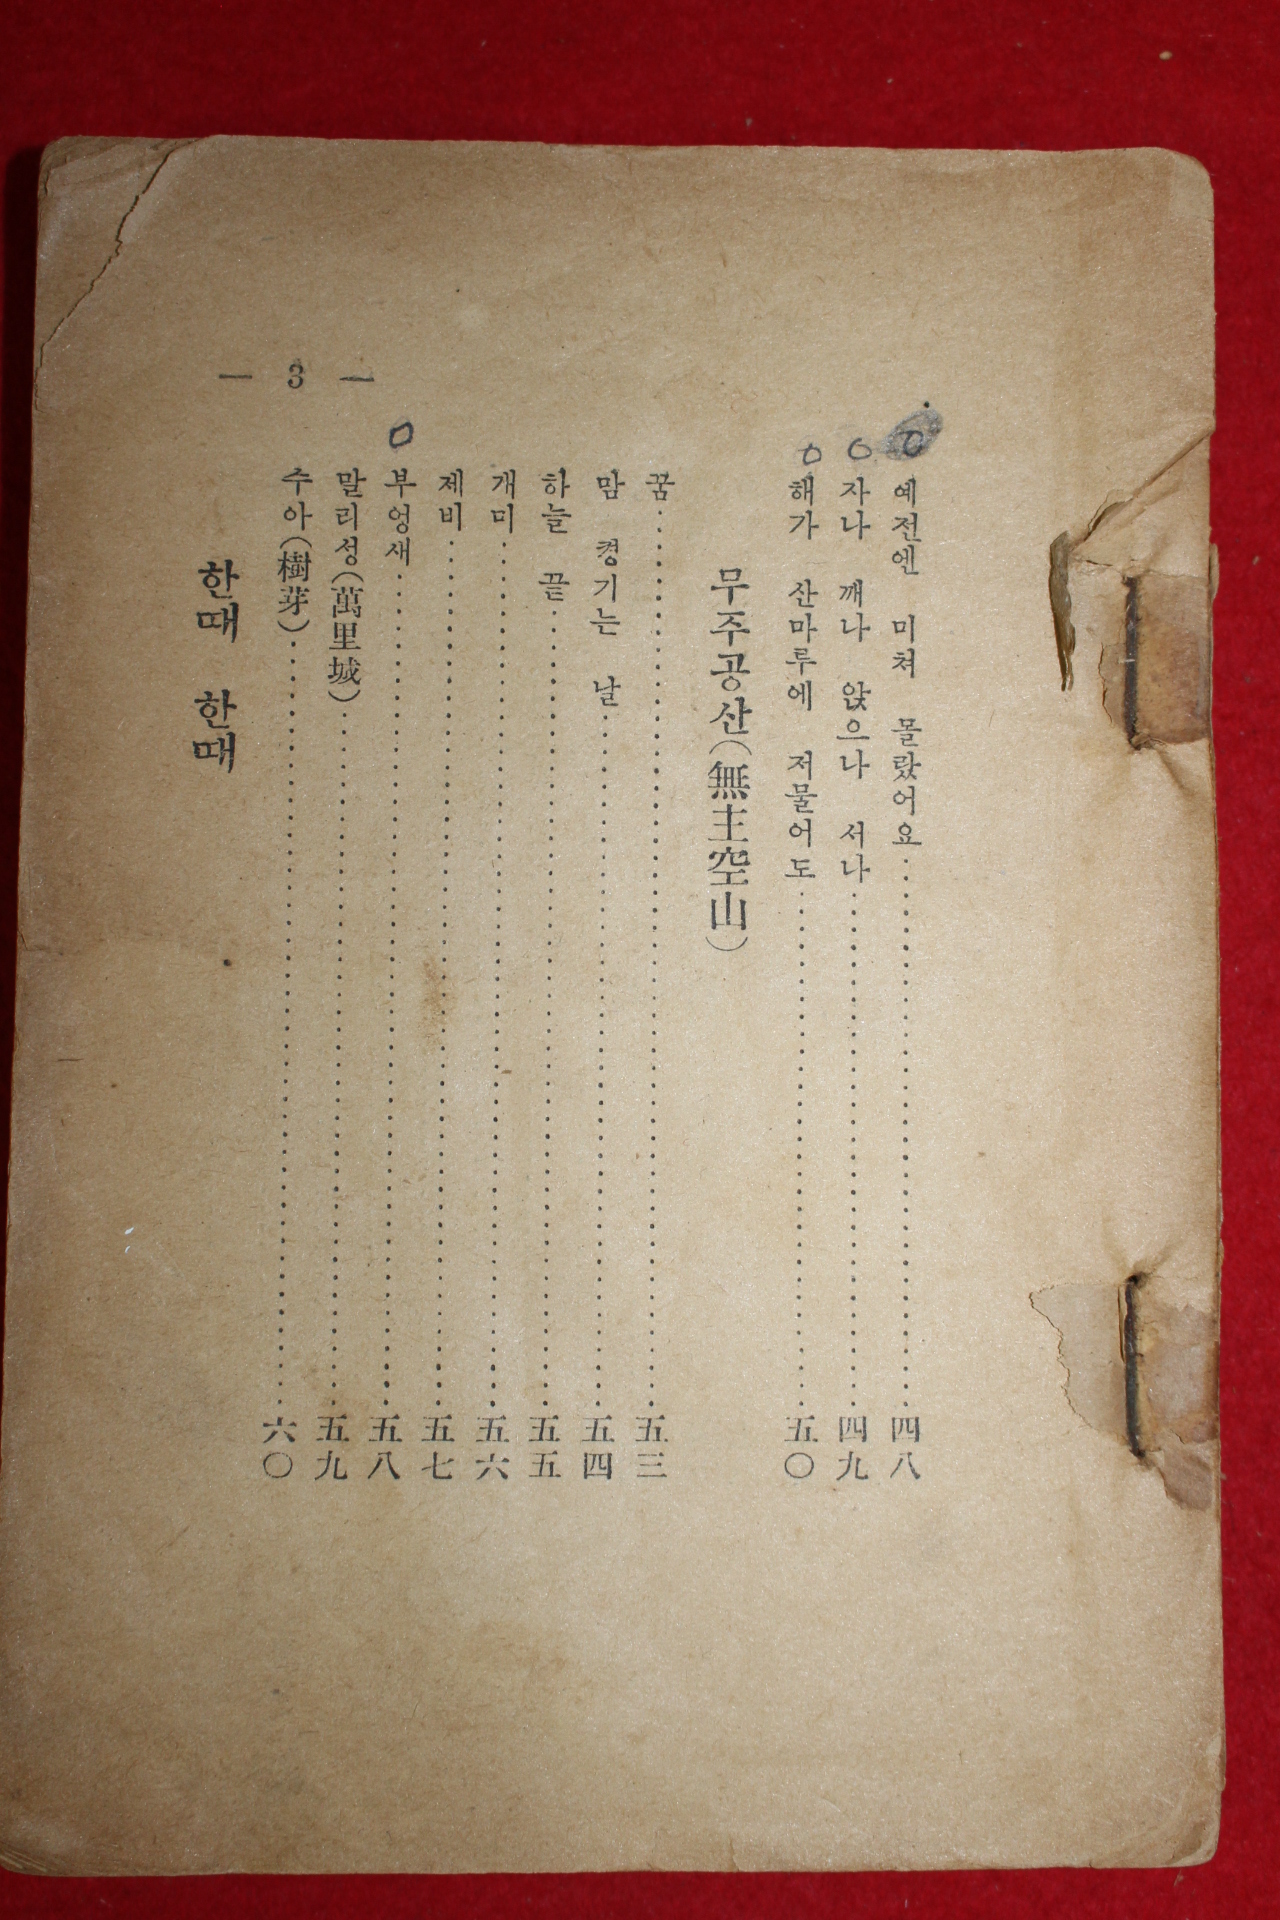 예전엔 미쳐 몰랐어요……………………四八
자나 깨나 앉으나 서나……………………四九
해가 산마루에 저물어도……………………五〇
무주공산(無主空山)
꿈……………………五三
맘 켱기는 날……………………五四
하늘 끝……………………五五
개미……………………五六
제비……………………五七
부엉새……………………五八
말리성(萬里城)……………………五九
수아(樹芽)……………………六〇
한때 한때
— 3 —